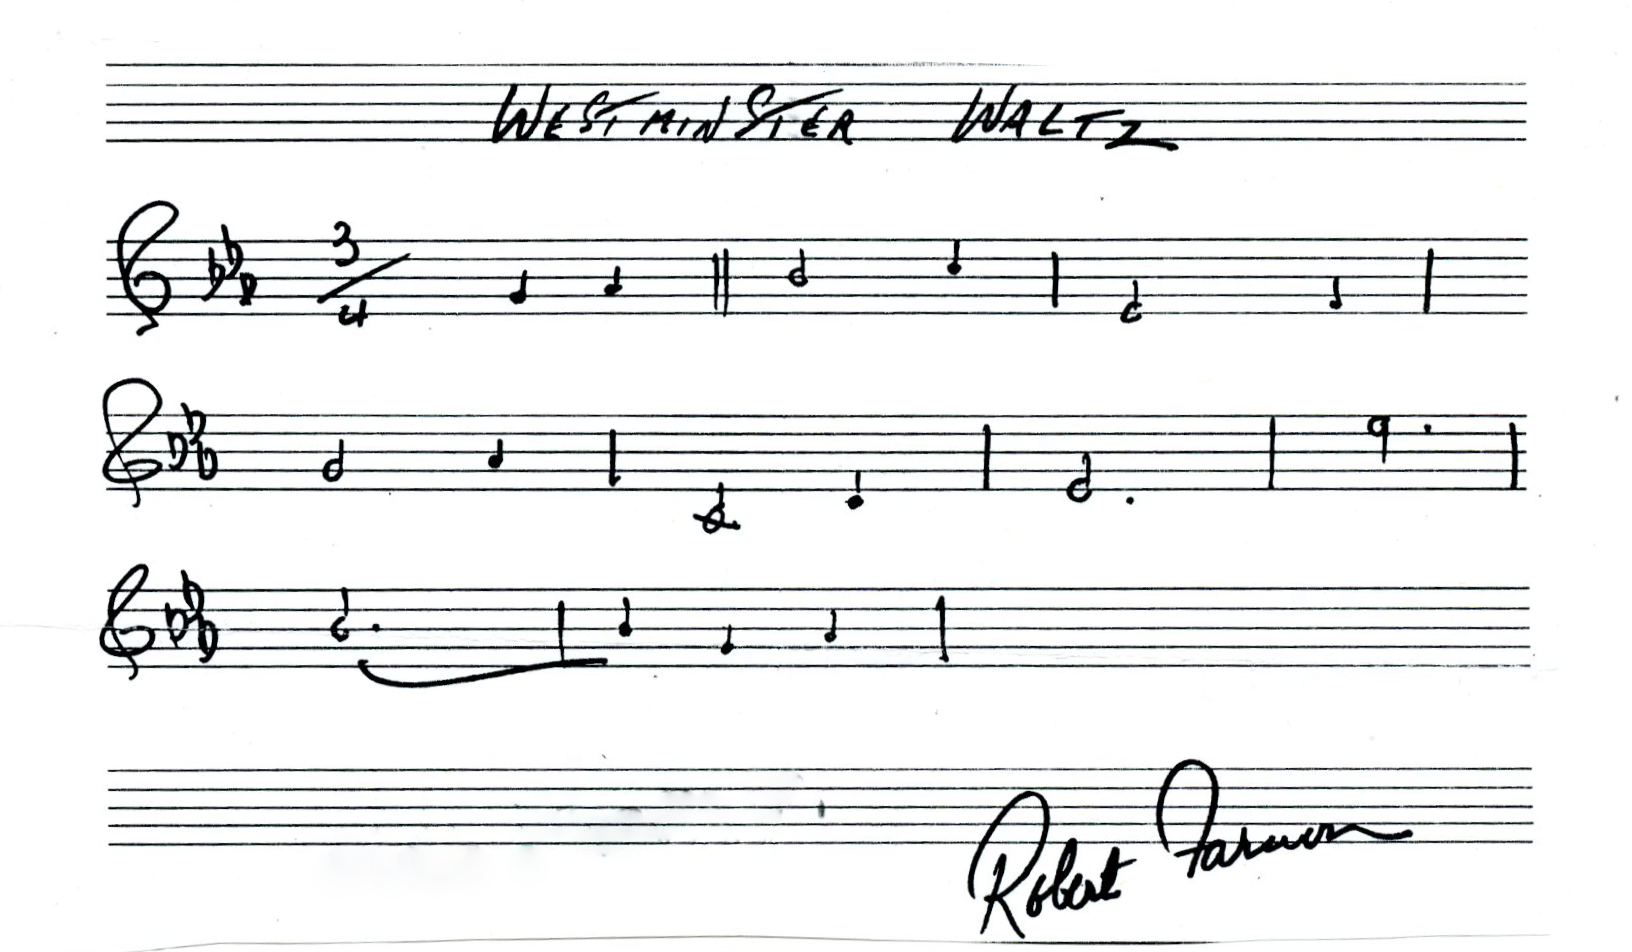 WESTMINSTER WALTZ
3/4
Robert Farnon